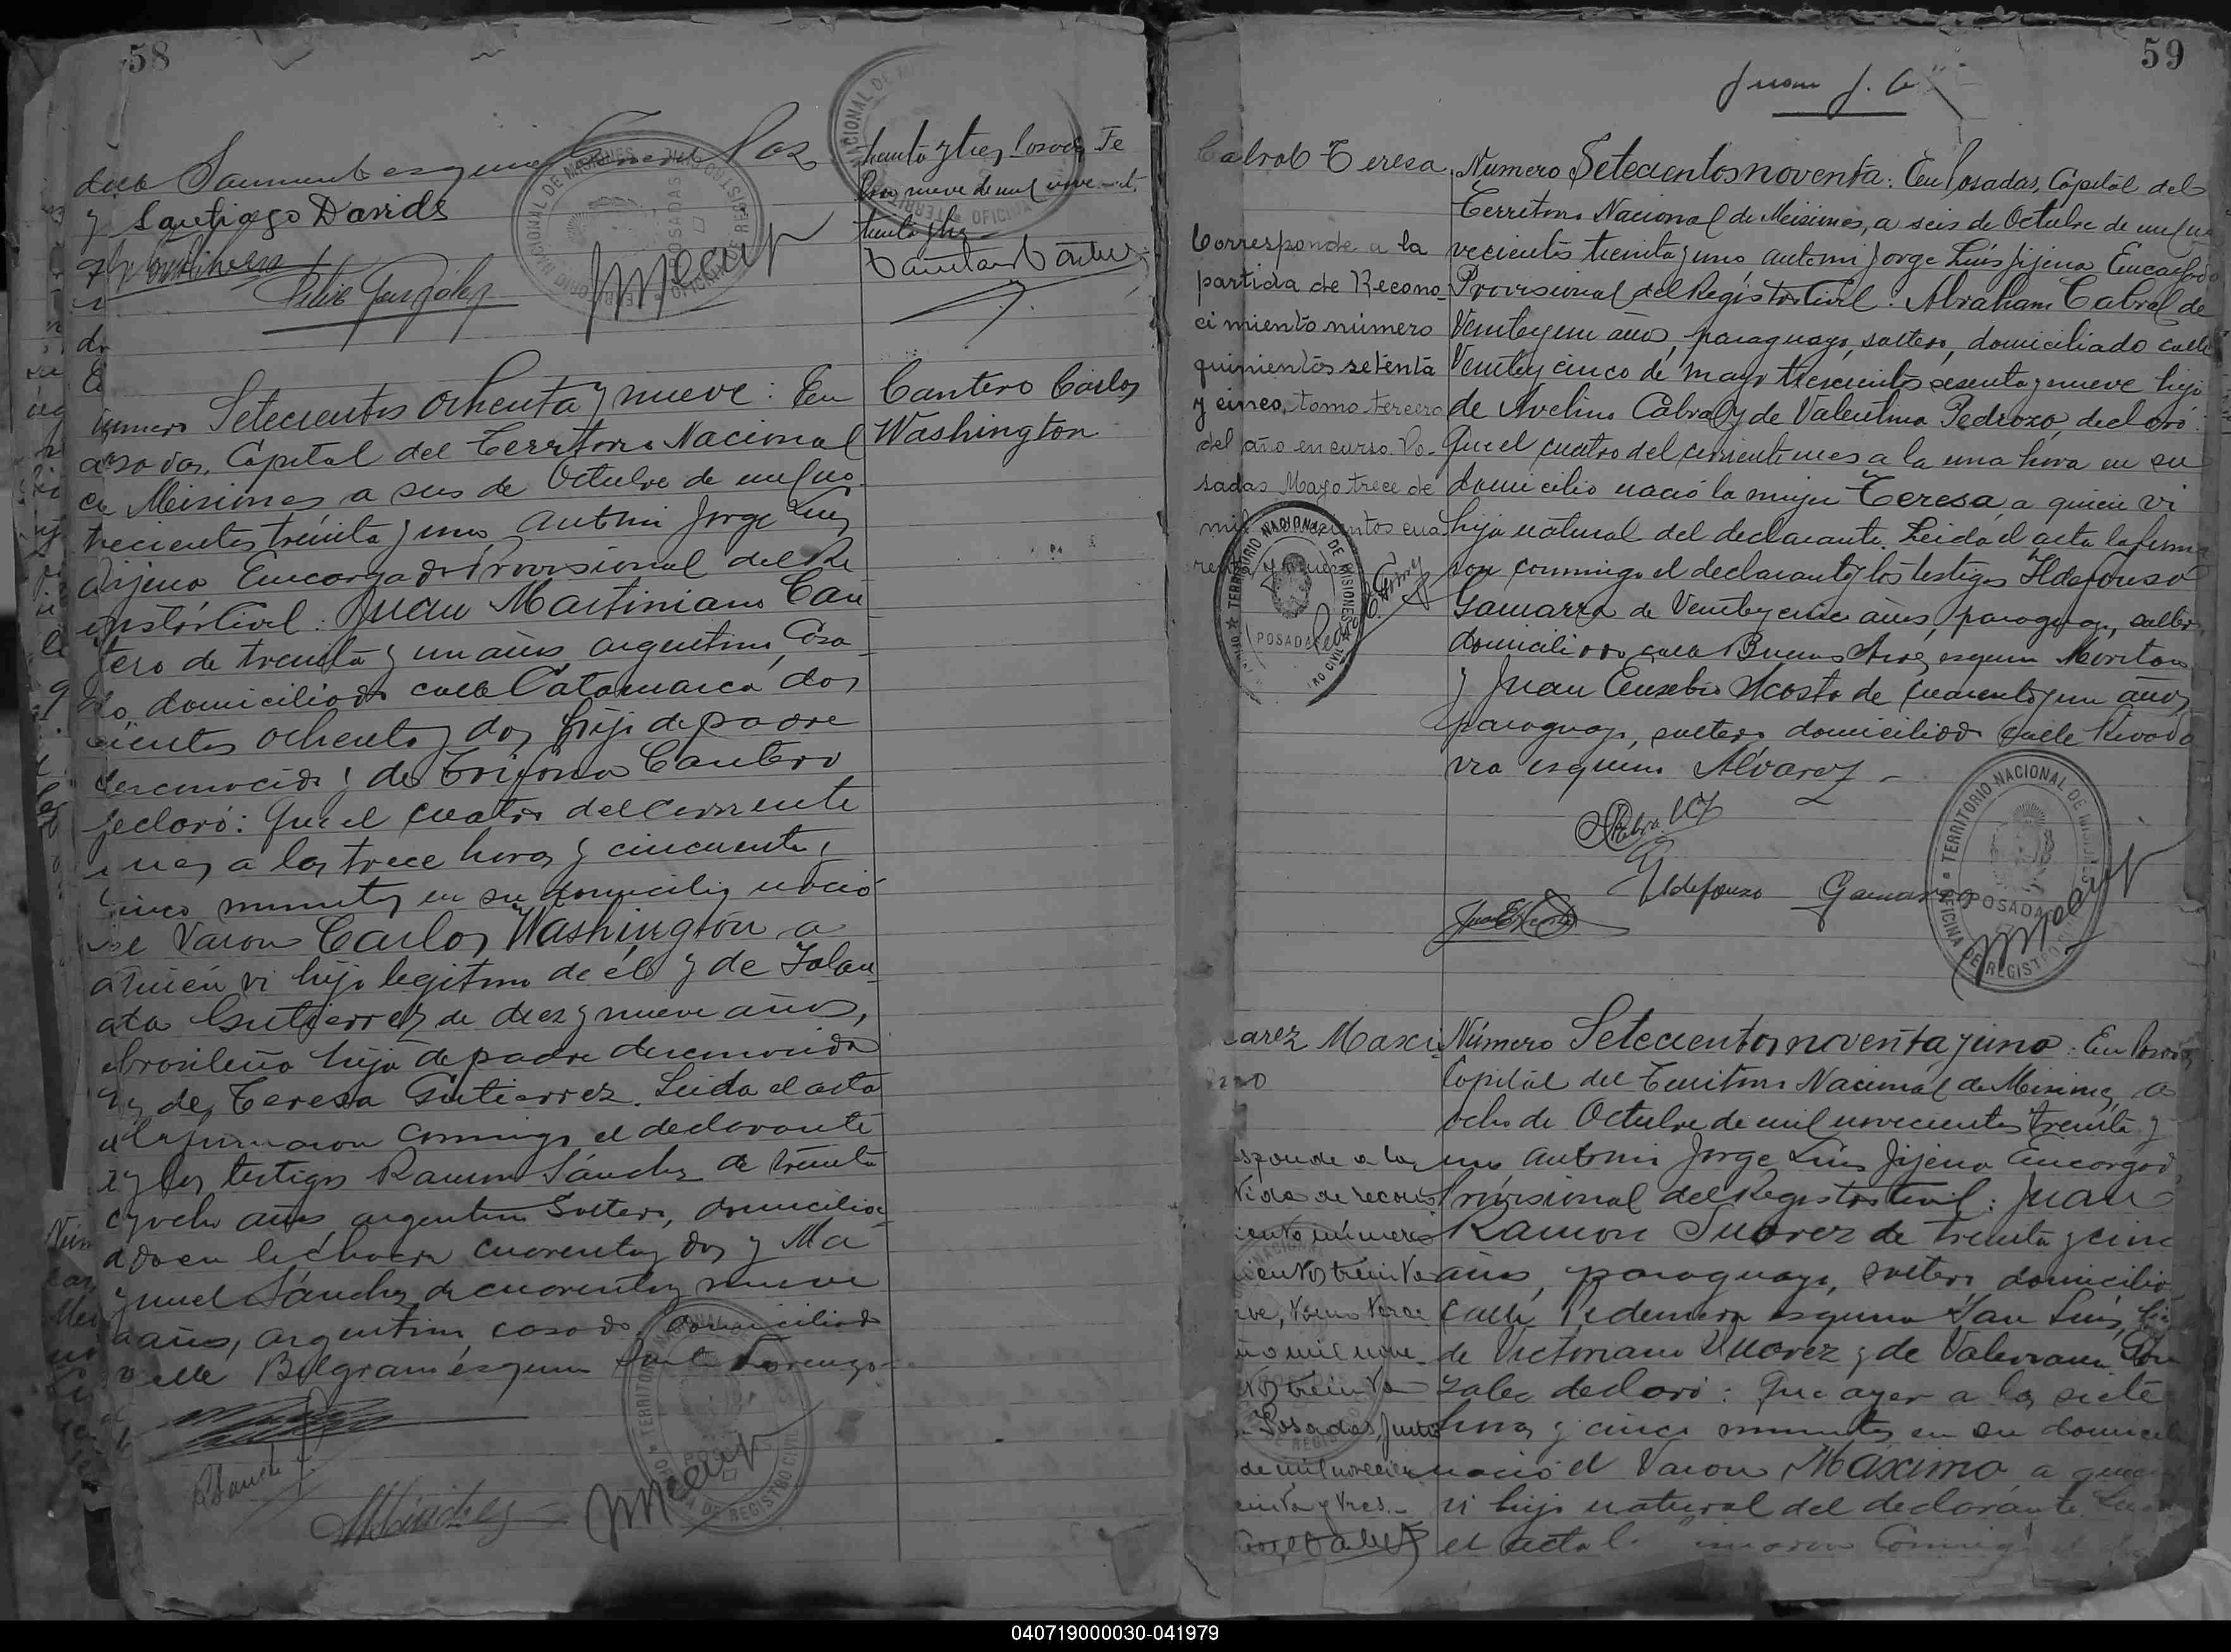 58
calle Sarmiento esquina General Paz
y Santiago Davids
Felix González
treinta y tres Posadas Fe
brero nueve de mil novecientos
treinta y tres
Cantero Carlos
Washington
Número Setecientos ochenta y nueve: En
Posadas, Capital del Territorio Nacional
de Misiones, a seis de Octubre de mil no
vecientos treinta y uno, ante mi Jorge Luis
Jijena Encargado Provisional del Re
gistro Civil: Juan Martiniano Can
tero de treinta y un años, argentino, casa
do, domiciliado calle Catamarca dos
cientos ochenta y dos, hijo de padre
desconocido y de Trifona Cantero
declaró: Que el cuatro del corriente
mes a las trece horas y cincuenta y
cinco minutos en su domicilio nació
el varon Carlos Washington a
quién vi hijo legitimo de él y de Yolan
da Gutierrez de diez y nueve años,
brasileña hija de padre desconocido
y de Teresa Gutierrez. Leida el acta
la firmaron conmigo el declarante
y los testigos Ramon Sánchez de treinta
y ocho años, argentino soltero, domicilia
do en la chacra cuarenta y dos y Ma
nuel Sánchez de cuarenta y nueve
años, argentino, casado, domiciliado
calle Belgrano esquina San Lorenzo
RSanchez
MSánchez
59
Juan J. G
Cabral Teresa
Corresponde a la
partida de Recono-
cimiento número
quinientos setenta
y cinco, tomo tercero
del año en curso. Po-
sadas Mayo trece de
mil novecientos cua
Número Setecientos noventa: En Posadas, Capital del
Territorio Nacional de Misiones, a seis de Octubre de mil no
vecientos treinta y uno, ante mi Jorge Luis Jijena Encargado
Provisional del Registro Civil: Abraham Cabral de
Veinte y un años, paraguayo, soltero, domiciliado calle
Veinte y cinco de mayo trescientos sesenta y nueve hijo
de Avelino Cabral y de Valentina Pedrozo, declaró:
Que el cuatro del corriente mes a la una hora en su
domicilio nació la mujer Teresa, a quien vi
hija natural del declarante. Leida el acta la firma
ron conmigo el declarante y los testigos Ildefonso
Gamarra de Veinte y cinco años, paraguayo, soltero,
domiciliado calle Buenos Aires esquina
y Juan Eusebio Acosta de cuarenta y un años,
paraguayo, soltero domiciliado calle Rivada
via esquina Alvarez
Ildefonzo Gamarra
TERRITORIO NACIONAL DE MISIONES
OFICINA DE REGISTRO CIVIL
POSADAS
uarez Maxi
mo
Número Setecientos noventa y uno: En Posadas
Capital del Territorio Nacional de Misiones, a
ocho de Octubre de mil novecientos treinta y
uno ante mi Jorge Luis Jijena Encargado
Provisional del Registro Civil: Juan
Ramon Suarez de treinta y cinco
años, paraguayo, soltero, domiciliado
calle Pedernera esquina San Luis, hijo
de Victoriano Suarez y de Valeriana Gon
zalez declaró: Que ayer a las siete
horas y cinco minutos en su domicilio
nació el varon Máximo a quien
vi hijo natural del declarante. Leida
el acta la firmaron conmigo el de
sponde a la
tida de recono
iento número
ientos treinta
eve, tomo terce
ño mil nove
tos treinta
Posadas, Junio
de mil novecien
einta y tres.-
040719000030-041979